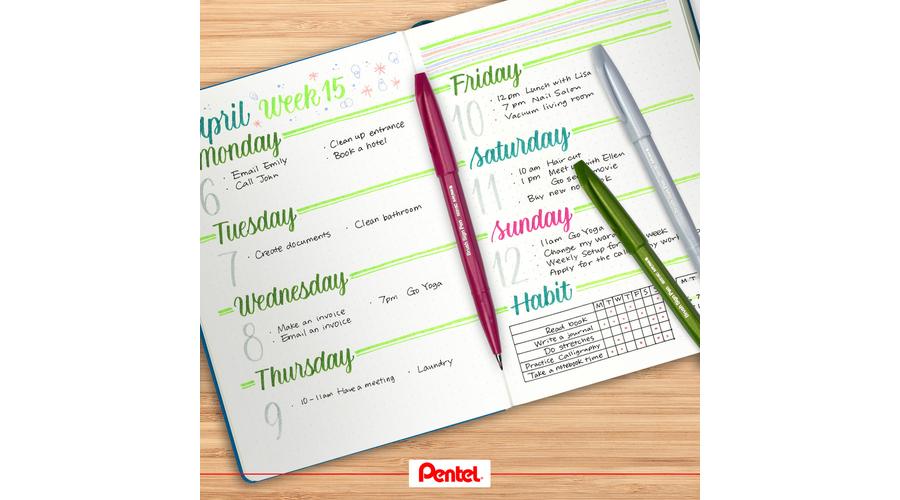 April Week 15
Monday
6
· Email Emily
· Call John
· Clean up entrance
· Book a hotel
Tuesday
7
· Create documents
· Clean bathroom
Wednesday
8
· Make an invoice
· Email an invoice
· 7pm Go Yoga
Thursday
9
· 10-11am Have a meeting
· Laundry
Friday
10
· 12pm Lunch with Lisa
· 7pm Nail Salon
· Vacuum living room
Saturday
11
· 10am Hair cut
· 1pm Meet with Ellen
Go movie
· Buy new
Sunday
12
· 11am Go Yoga
· Change my week
· Weekly Setup for
· Apply for the
Habit
M T W T F S S
Read book
Write a journal
Do stretches
Practice Calligraphy
Take a notebook time
Brush Sign Pen
Brush Sign Pen
Brush Sign Pen
M T
Pentel